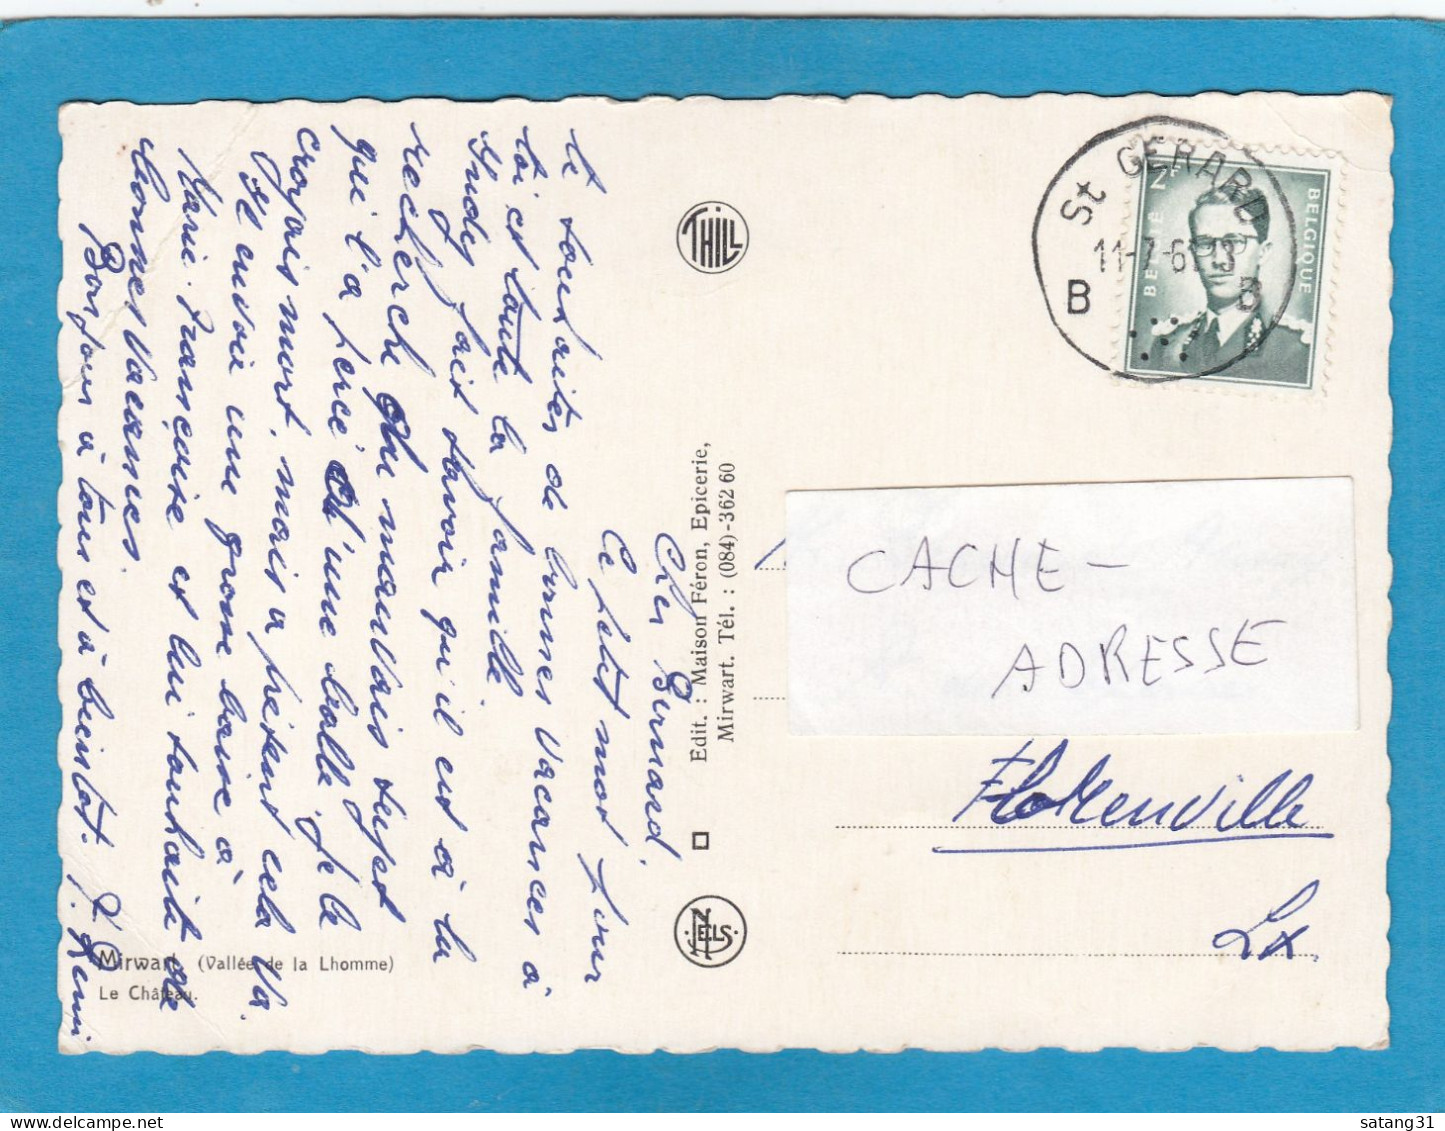 Cher Bernard,
Ce petit mot pour
te souhaiter de bonnes vacances à
toi et toute la famille
Andes fait savoir qu'il est à la
recherche du mauvais sujet
qui l'a percé d'une balle. Je le
croyais mort, mais a présent cela va.
Il envoie une grosse baise à
Marie-Françoise et lui souhaite de
bonnes vacances
Bonjour à tous et à bientot.
Mirwart (Vallée de la Lhomme)
Le Château.
THILL
Edit. : Maison Féron, Epicerie,
Mirwart. Tél. : (084)-362 60
NELS
St GERARD
11-7-67
B B
BELGIË 2F BELGIQUE
CACHE-
ADRESSE
Florenville
Lx
satang31